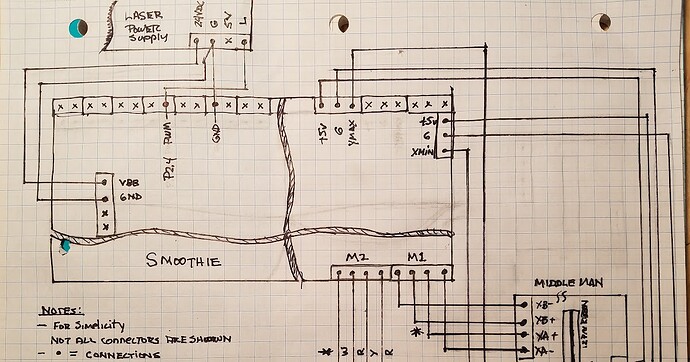 LASER
POWER
SUPPLY
24VDC
G
5V
L
X
X X X X X X X X X X X X
X X X X X X
P2.4 PWM
GND
+5V
G
YMAX
+5V
G
XMIN
VBB
GND
X
X
SMOOTHIE
M2
M1
* W R Y R
*
MIDDLE MAN
XB-
XB+
XA+
XA-
NOTES:
— FOR SIMPLICITY
NOT ALL CONNECTORS ARE SHOWN
— • = CONNECTIONS